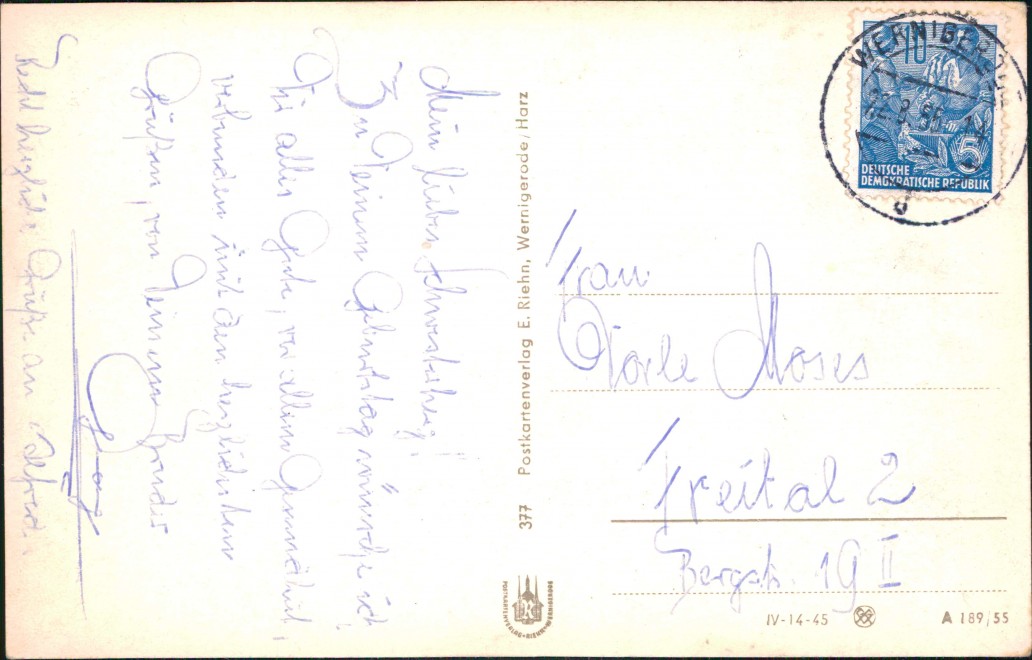 Mein liebes Schwesterherz!
Zu Deinem Geburtstag wünsche ich
Dir alles Gute, vor allem Gesundheit,
verbunden mit den herzlichsten
Grüßen, von Deinem Bruder
Georg
Recht herzliche Grüße an Alfred
377 Postkartenverlag E. Riehn, Wernigerode/Harz
POSTKARTENVERLAG · RIEHN · WERNIGERODE
WERNIGERODE
10
5
DEUTSCHE
DEMOKRATISCHE REPUBLIK
Frau
Dorle Moses
Freital 2
Bergstr. 19 II
IV-14-45 A 189/55